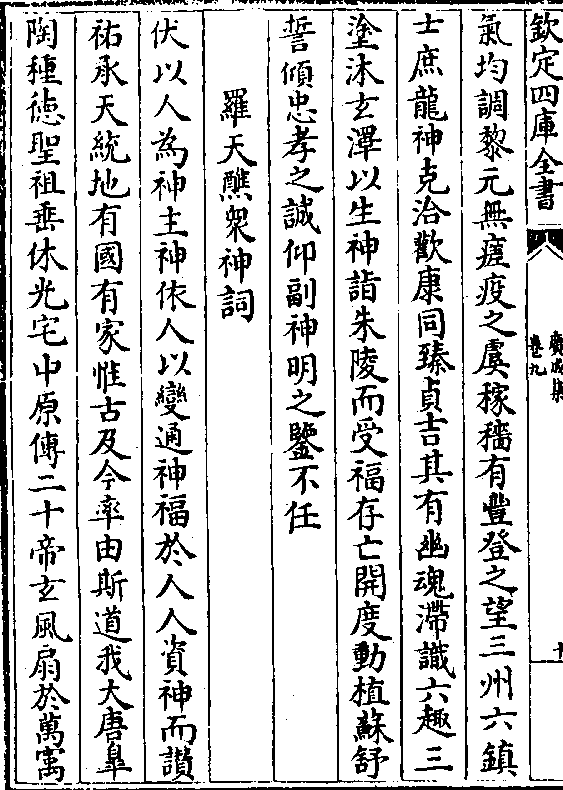 欽定四庫全書
廣成集
卷九
氣均調黎元無瘥疫之虞稼穡有豐登之望三州六鎮
士庶龍神克洽歡康同臻貞吉其有幽魂滯識六趣三
塗沐玄澤以生神詣朱陵而受福存亡開度動植蘇舒
誓傾忠孝之誠仰副神明之鑒不任
羅天醮衆神詞
伏以人為神主神依人以變通神福於人人資神而讃
祐承天統地有國有家惟古及今率由斯道我大唐臯
陶種徳聖祖垂休光宅中原傳二十帝玄風扇於萬㝢